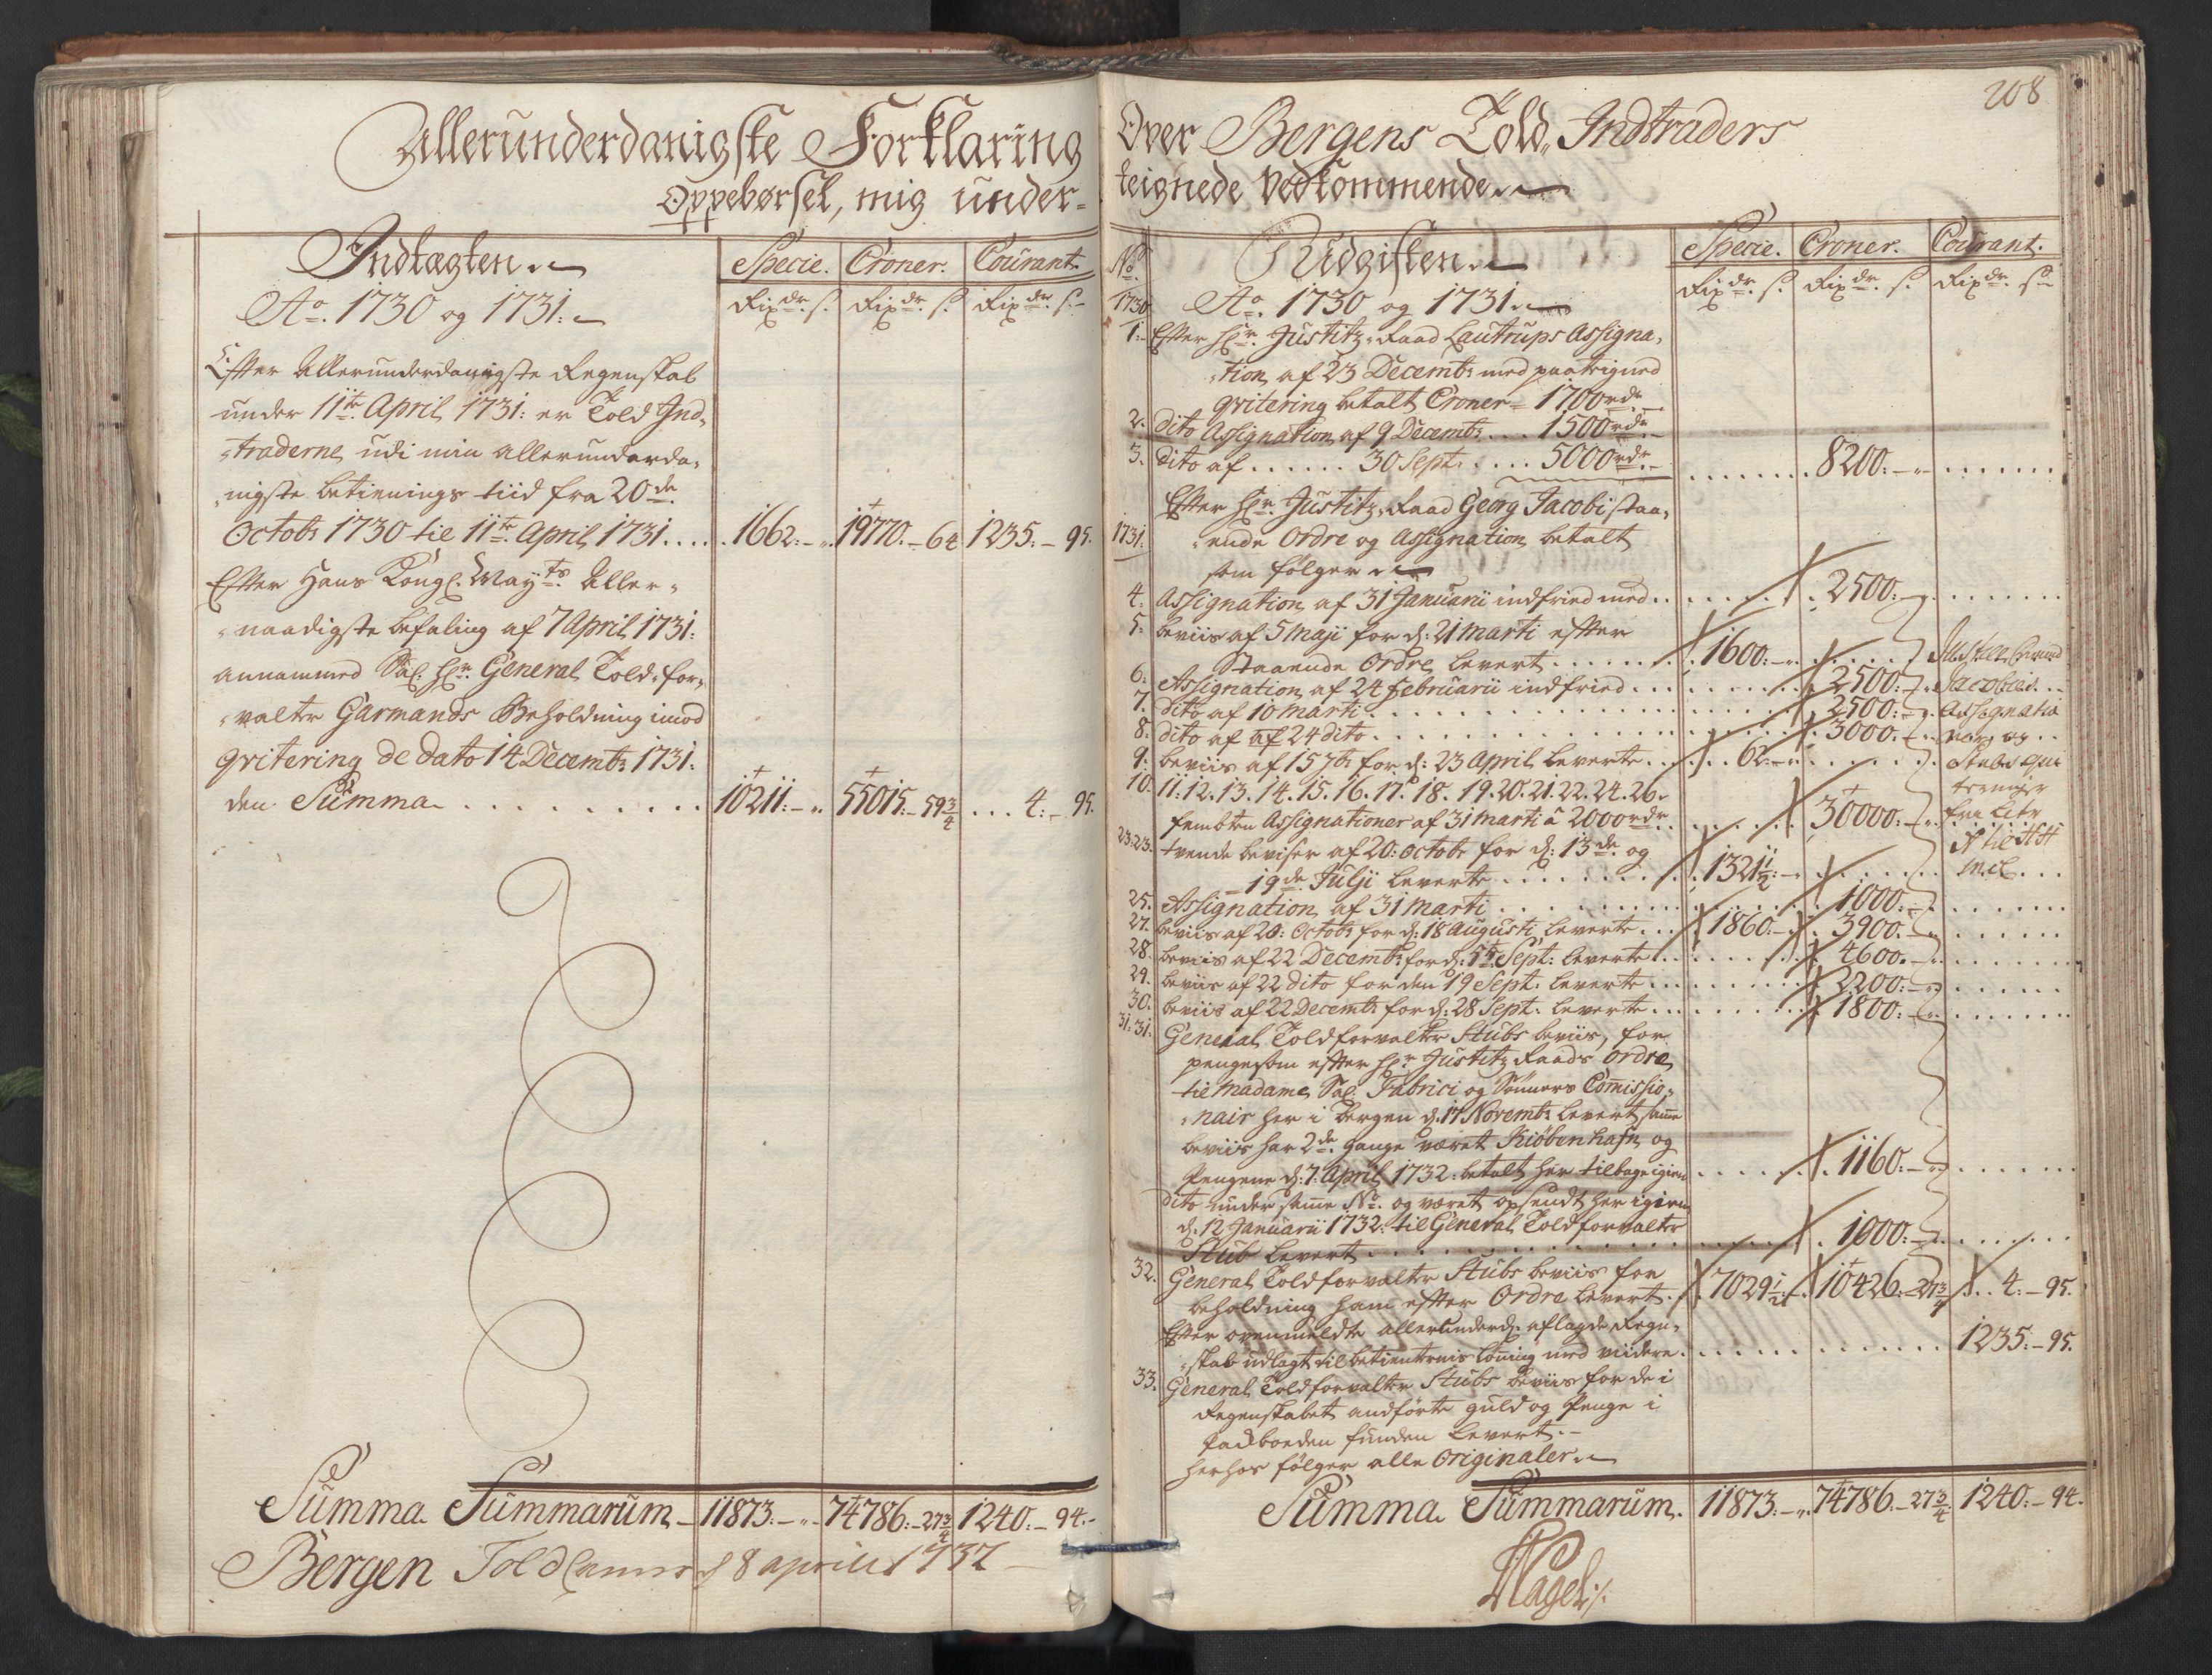 Allerunderdanigste Forklaring
Oppebørsel, mig under-
Indtagten
Specie. Croner. Courant.
Rixdr. s. Rixdr. s. Rixdr. s.
Ao. 1730 og 1731.
Efter Allerunderdanigste Regenskab
under 11te April 1731: er Told Ind-
traderne udi min allerunderda-
nigste betienings tiid fra 20de
Octobr 1730 til 11te April 1731.... 1662:-,, 19770.-64 1235.-95.
Efter Hans Kongl. Mayts Aller-
naadigste befaling af 7 April 1731:
annammed Sal. Hr. General Told-for-
valter Garmands Beholdning imod
qvitering de dato 14 Decembr 1731:
den Summa . . . . . . . . . 10211:-,, 55015.-59¾ ... 4:-95.
Summa Summarum - 11873:-,,- 74786:-27¾ 1240:-94.-
Bergen Told Camer d 8 aprill 1732
208
Over Bergens Told-Indtraders
teignede Vedkommende
No.
Udgiften
Specie. Croner. Courant.
Rixdr. s. Rixdr. s. Rixdr. s.
1730 Ao. 1730 og 1731
1. Efter Hr. Justitz-Raad Lautrups Assigna-
tion af 23 Decembr med paateigned
qvitering betalt Croner = 1700rdr
2. dito Assignation af 9 Decembr... 1500rdr
3. dito af ...... 30 Sept. .... 5000rdr ....... 8200:-,,-.......
Efter Hr. Justitz-Raad Georg Jacobi staa-
1731. ende Ordre og Assignation betalt
som følger
4. Assignation af 31 Januarii indfried med ....... 2500:-,,.......
5. beviis af 5 Maji for d: 21 Marti efter
staaende Ordre levert....... 1600:-,,.......
6. Assignation af 24 Februarii indfried ....... 2500:-,,
7. dito af 10 Marti....... 2500:-,,
8. dito af af 24 dito....... 3000.-,,
9. beviis af 15 7br for d: 23 April leverte .... 62:-,,.......
Assignatio
fra Litr
10. 11: 12. 13. 14. 15. 16. 17. 18. 19. 20. 21. 22. 24. 26.
fembten Assignationer af 31 Marti â 2000rdr ....... 30000:-,,
23. 23. tvende beviser af 20: Octobr for d: 13de og
19de Julji leverte....... 1321½:-,,.......
25. Assignation af 31 Marti ....... 1000:-,,.......
27. beviis af 20: Octobr for d: 18 Augusti leverte... 1860.-,, 3900.-,,.......
28. beviis af 22 Decembr for d: 5te Sept: leverte ....... 4600.-,,.......
29. beviis af 22 dito for den 19 Sept: leverte ....... 2200:-,,.......
30. beviis af 22 Decembr for d: 28 Sept. leverte ....... 1800:-,,.......
31. 31. General Toldforvalter Stubs beviis, for
penge som efter Hr. Justitz Raads Ordre
til Madame Sal. Fabrici og Sønners Commissio-
nair her i Bergen d. 17 Novembr levert, samme
beviis har 2de gange været Kiøbenhafn og
Pengene d: 7. April 1732: betalt her tilbage igien ..... 1160.-,,.......
dito under samme No. og været opsendt her igien
d: 12 Januarii 1732: til General Toldforvalter
Stub levert....... 1000:-,,.......
32. General Toldforvalter Stubs beviis for
beholdning ham efter Ordre levert. 7029½:- 10426:-27¾ .. 4:-95.
Efter ovenmeldte allerunderd: aflagde Regn-
skab udlagt til betienternis lønning med viidere ....... 1235:-95.
33. General Toldforvalter Stubs beviis for de i
Regenskabet andførte guld og Penge i
Padboeden funden levert.-
herhos følger alle Originaler
Summa Summarum. 11873:-,,. 74786.-27¾ 1240:-94.
Nagel